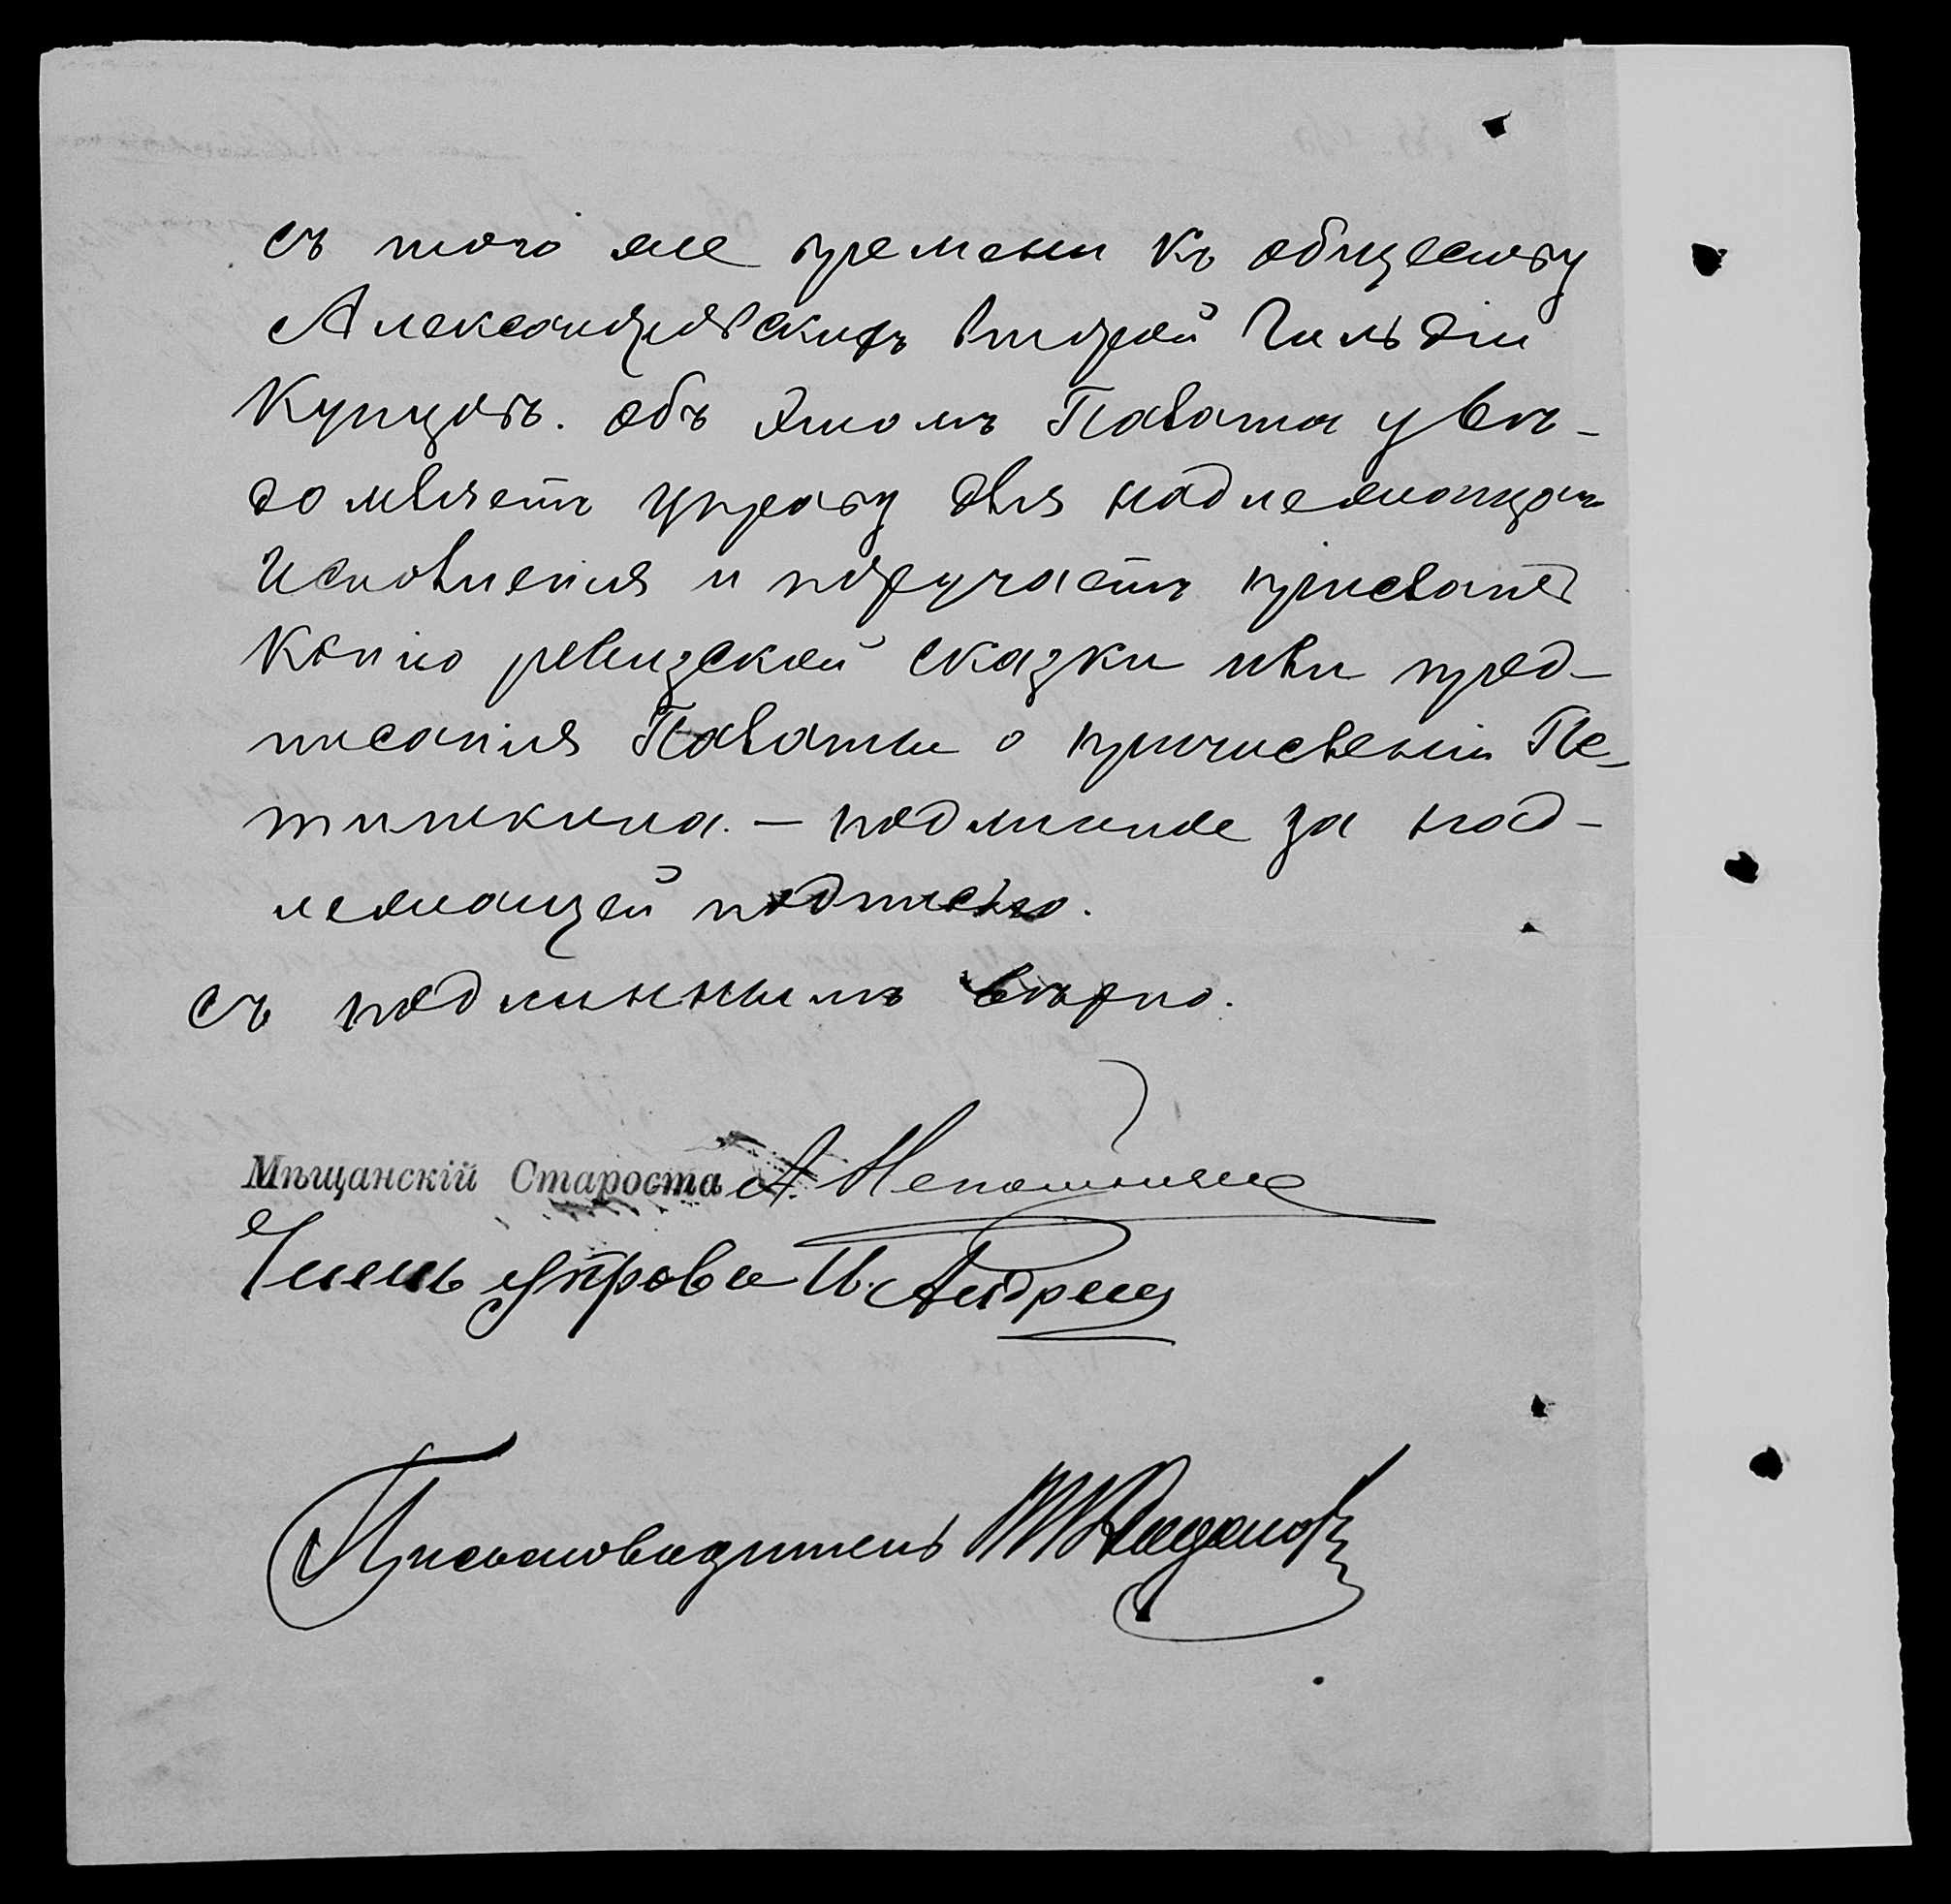 съ того же времени къ обществу
Александровскихъ второй Гильдіи
Купцовъ. объ этомъ Палата увѣ-
домляетъ управу для надлежащаго
исполненія и поручаетъ прислать
Копію ревизской сказки или пред-
писанія Палаты о причисленіи Пе-
тишкина. – подлинное за над-
лежащей подписью.
съ подлиннымъ вѣрно.
Мѣщанскій Староста А. Непомнящ
Членъ управы И. Андрец
Письмоводитель